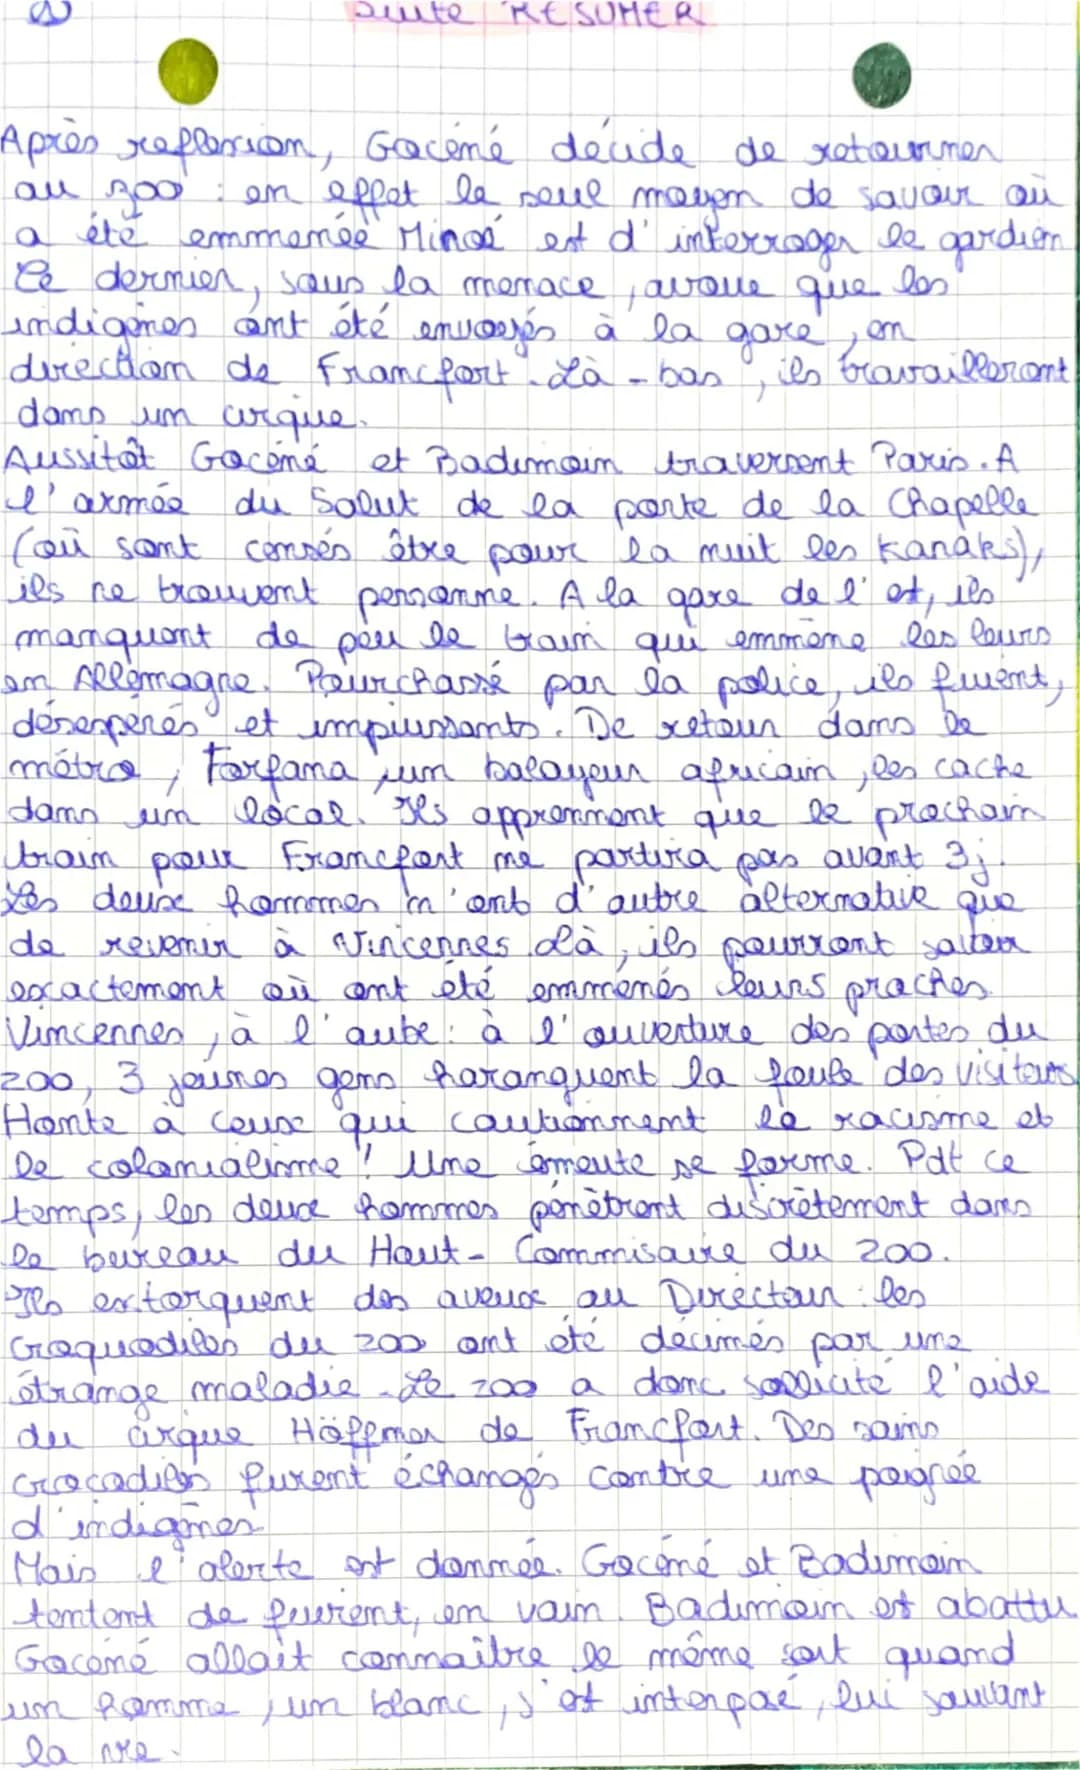 Suite RESUMER
Après reflexion, Gocéné décide de retourner
au zoo : en effet le seul moyen de savoir où
a été emmenée Minoé est d'interroger le gardien
Ce dernier, sous la menace, avoue que les
indigènes ont été envoyés à la gare, en
direction de Francfort. Là-bas, ils travailleront
dans un cirque.
Aussitôt Gocéné et Badimoin traversent Paris. A
l'armée du Salut de la porte de la Chapelle
(où sont censés être pour la nuit les Kanaks),
ils ne trouvent personne. A la gare de l'est, ils
manquent de peu le train qui emmène les leurs
en Allemagne. Pourchassé par la police, ils fuient,
désespérés et impuissants. De retour dans le
métro, Fofana, un balayeur africain, les cache
dans un local. Ils apprennent que le prochain
train pour Francfort ne partira pas avant 3j.
Les deux hommes n'ont d'autre alternative que
de revenir à Vincennes. Là, ils pourront savoir
exactement où ont été emmenés leurs proches.
Vincennes, à l'aube : à l'ouverture des portes du
zoo, 3 jeunes gens haranguent la foule des visiteurs
Honte à ceux qui cautionnent le racisme et
le colonialisme ! Une émeute se forme. Pdt ce
temps, les deux hommes pénètrent discrètement dans
le bureau du Haut-Commisaire du zoo.
Ils extorquent des aveux au Directeur : les
Croquodiles du zoo ont été décimés par une
étrange maladie. Le zoo a donc sollicité l'aide
du cirque Höffner de Francfort. Des sains
crocodiles furent échangés contre une poignée
d'indigènes
Mais l'alerte est donnée. Gocéné et Badimoin
tentent de fuirent, en vain. Badimoin est abattu
Gocéné allait connaître le même sort quand
un homme, un blanc, s'est interposé, lui sauvant
la vie.